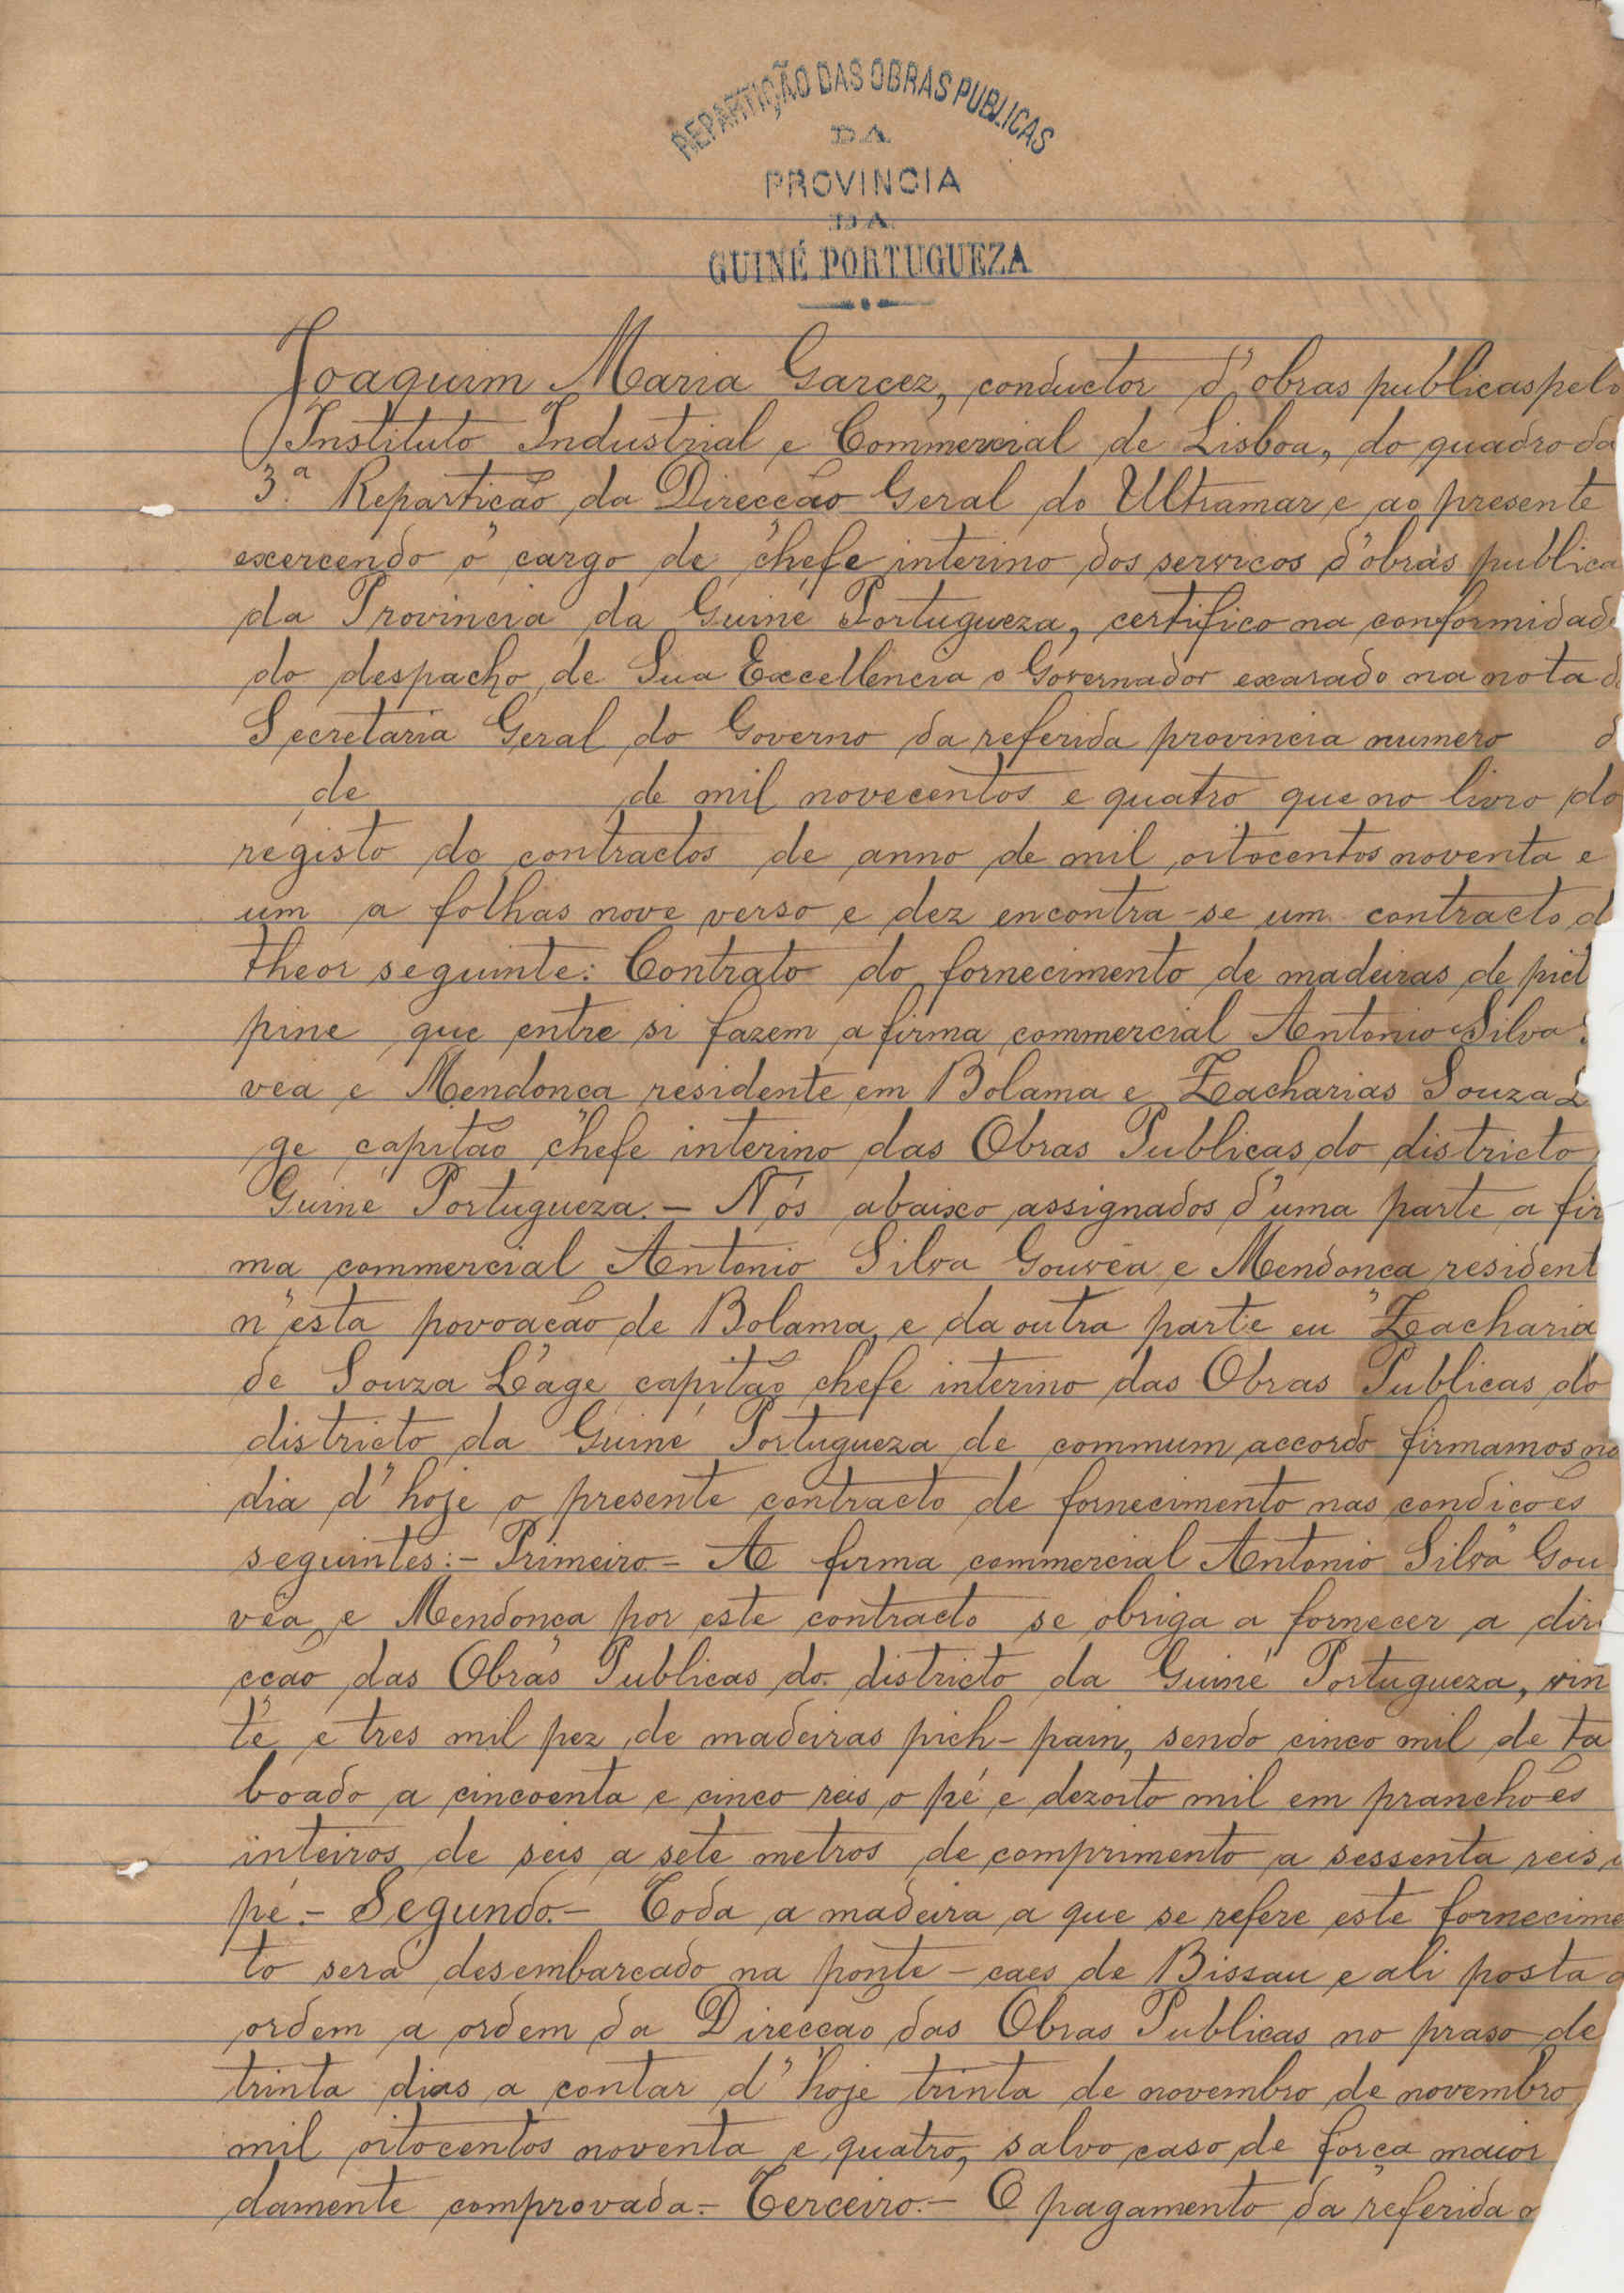 REPARTIÇÃO DAS OBRAS PUBLICAS
DA
PROVINCIA
DA
GUINÉ PORTUGUEZA
Joaquim Maria Garcez, conductor d'obras publicas pelo
Instituto Industrial e Commercial de Lisboa, do quadro da
3.ª Repartição da Direcção Geral do Ultramar e ao presente
exercendo o cargo de chefe interino dos serviços d'obras publica
da Provincia da Guiné Portugueza, certifico na conformidade
do despacho de Sua Excellencia o Governador exarado na nota d
Secretaria Geral do Governo da referida provincia numero d
de de mil novecentos e quatro que no livro do
registo do contractos de anno de mil oitocentos noventa e
um a folhas nove verso e dez encontra-se um contracto d
theor seguinte: Contrato do fornecimento de madeiras de pict
pine que entre si fazem a firma commercial Antonio Silva
vea e Mendonça residente em Bolama e Zacharias Souza L
ge capitão chefe interino das Obras Publicas do districto
Guiné Portugueza.- Nós abaixo assignados d'uma parte a fir
ma commercial Antonio Silva Gouvêa e Mendonça resident
n'esta povoação de Bolama, e da outra parte eu Zacharia
de Souza Láge capitão chefe interino das Obras Publicas do
districto da Guiné Portugueza de commum accordo firmamos no
dia d'hoje o presente contracto de fornecimento nas condições
seguintes:- Primeiro- A firma commercial Antonio Silva Gou
vêa, e Mendonça por este contracto se obriga a fornecer a dire
cção das Obras Publicas do districto da Guiné Portugueza, vin
te e tres mil pez de madeiras pich-pain, sendo cinco mil de ta
boado a cincoenta e cinco reis o pé e dezoito mil em pranchões
inteiros de seis a sete metros de comprimento a sessenta reis o
pé.- Segundo.- Toda a madeira a que se refere este fornecime
to será desembarcado na ponte-caes de Bissau e ali posta a
ordem a ordem da Direcção das Obras Publicas no praso de
trinta dias a contar d'hoje trinta de novembro de novembro
mil oitocentos noventa e quatro, salvo caso de força maior
damente comprovada.- Terceiro.- O pagamento da referida